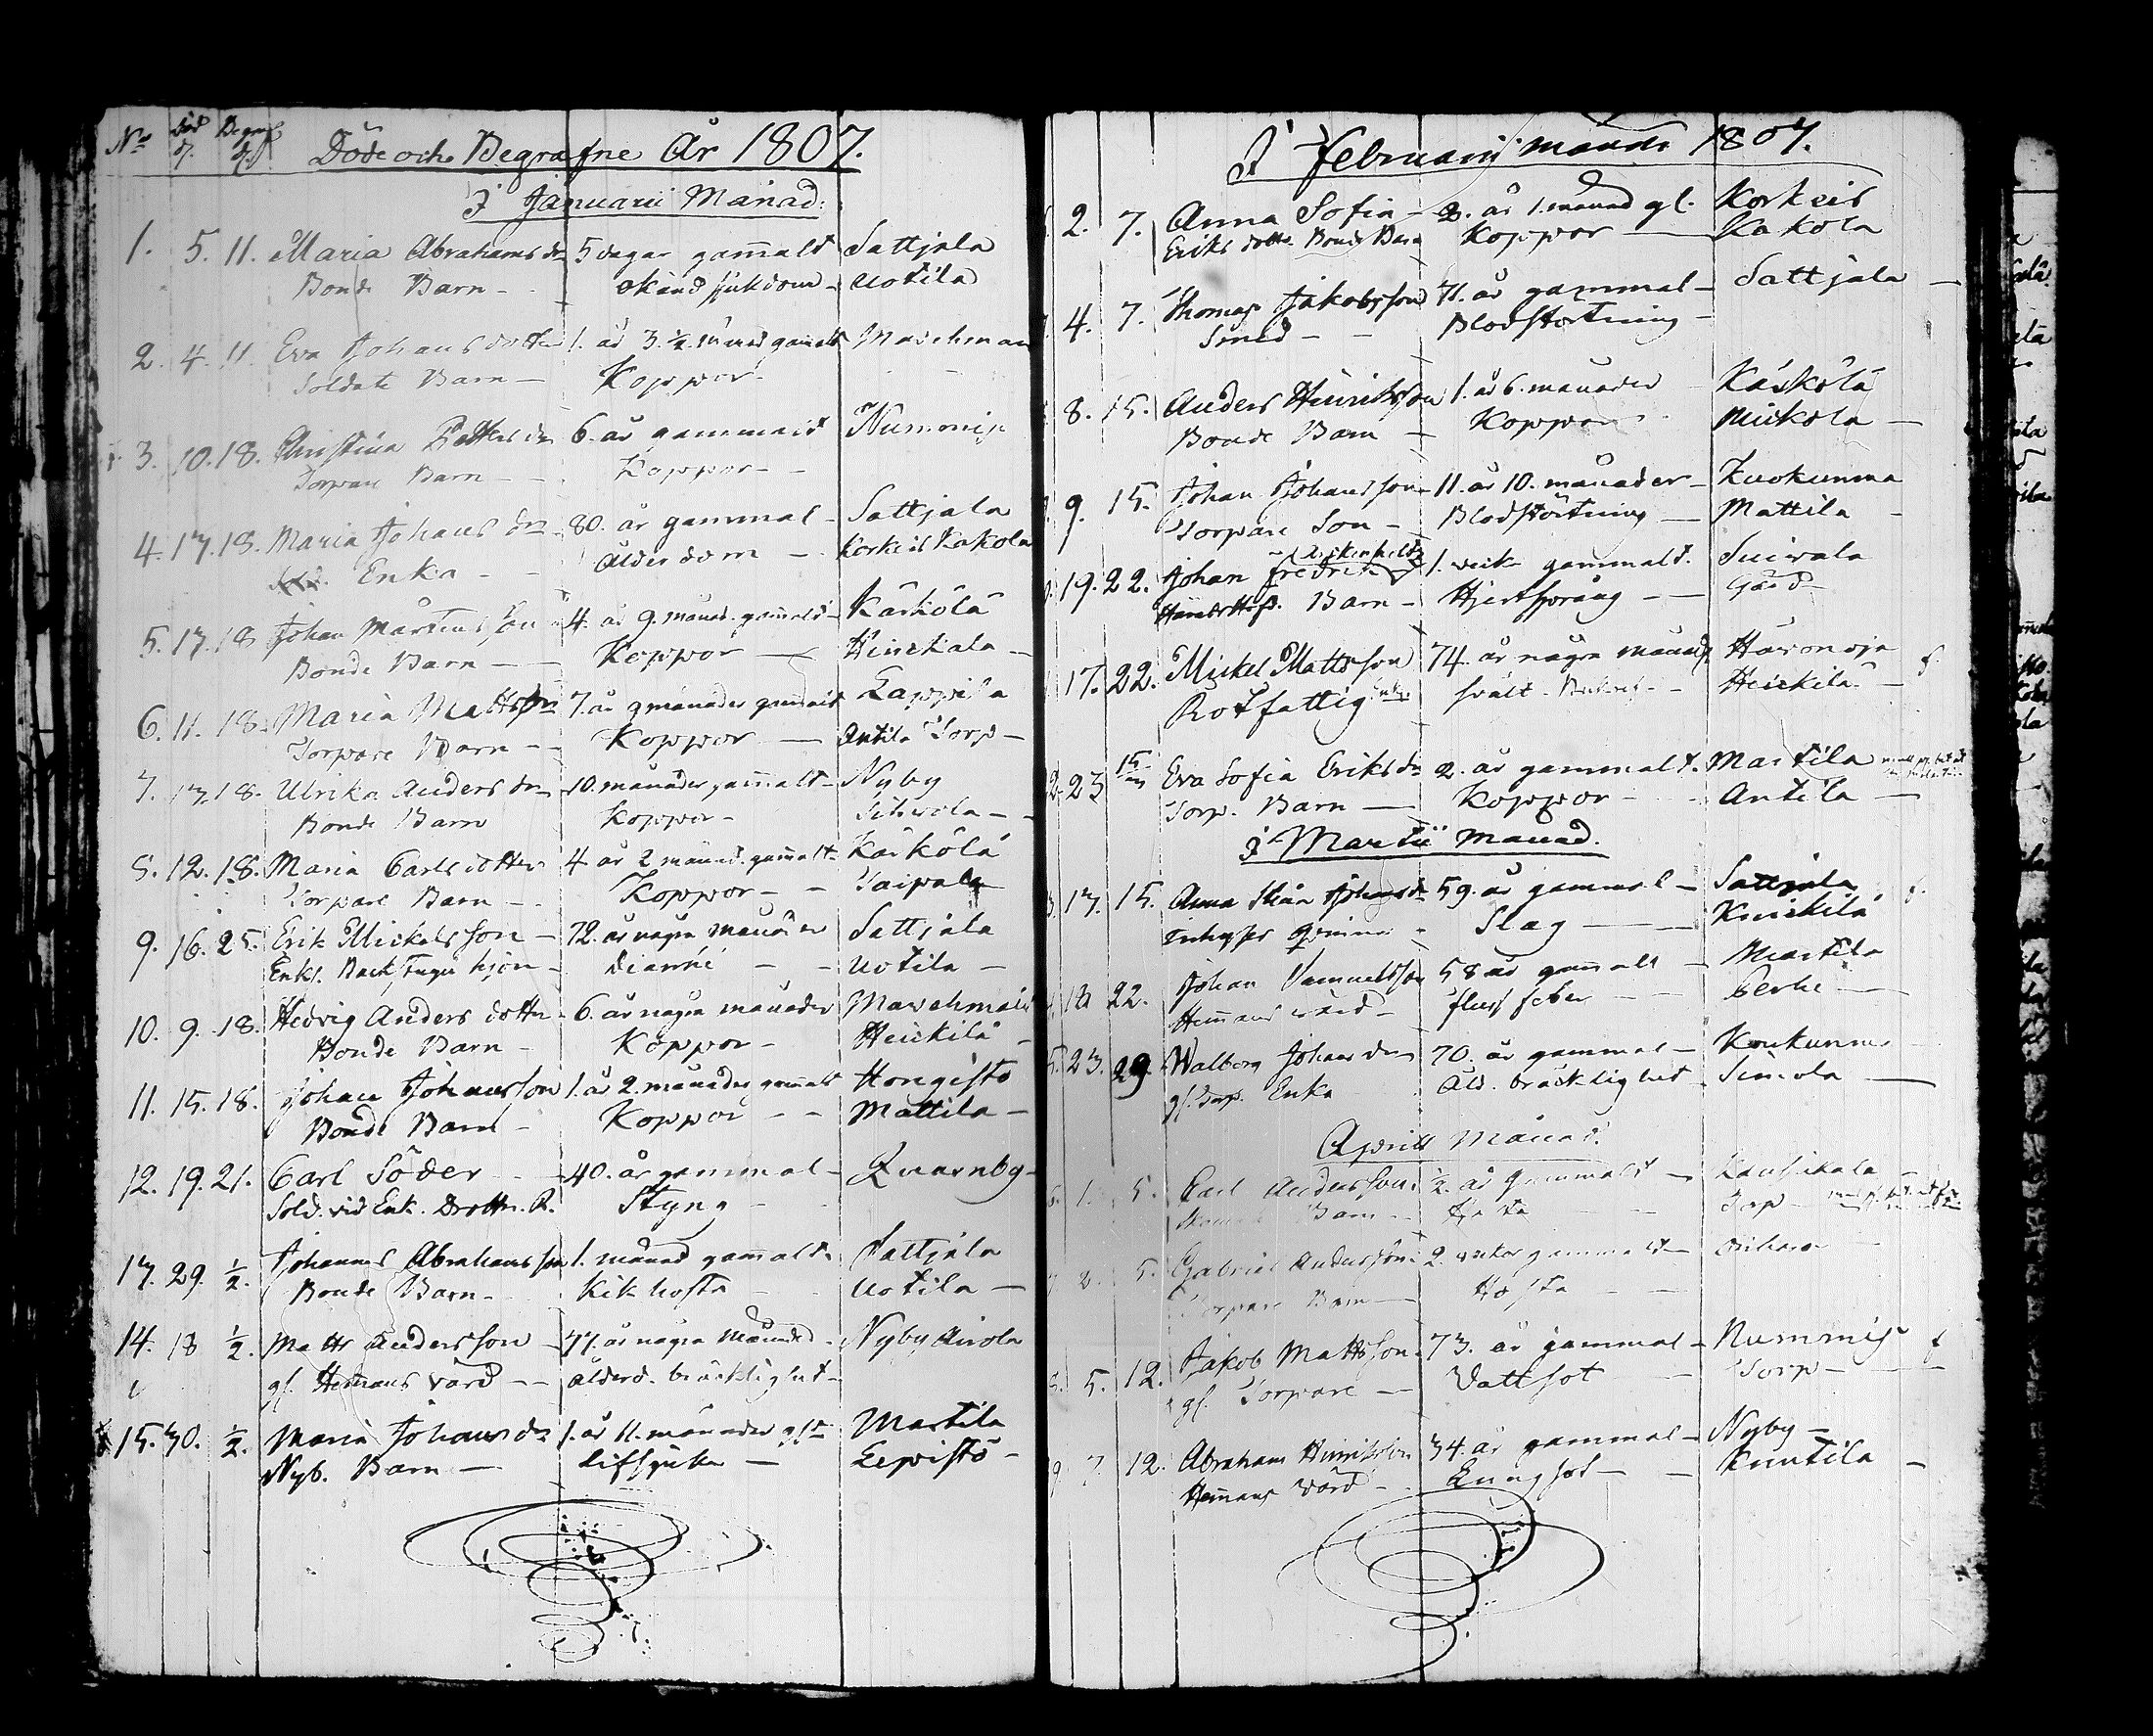 No Död d. Begraf. d.
Döde och Begrafne År 1807.
I Januarii Månad.
1. 5. 11. Maria Abrahams dr 5 dagar gamalt Sattjala
Bonde Barn - okänd sjukdom - Uotila
2. 4. 11. Eva Johans dotter 1. år 3. ½. månad gamalt
Soldate Barn - Koppor.
3. 10. 18. Christina dr 6. år gammalt Nummis
Torpare Barn - Koppor -
4. 17. 18. Maria Johans dr 80. år gammal - Sattjala
Enka - ålderdom - Korkeis Kakola
5. 17. 18 Johan Mårtens son 4. år 9. månad. gamalt - Kärkölä
Bonde Barn - Koppor - Heickala -
6. 11. 18. Maria Matts dr 7. år 9 månader gamalt Lappila
Torpare Barn - Koppor - Antila Torp -
7. 17. 18. Ulrika Anders dr 10. månader gamalt - Nyby
Bonde Barn Koppor -
8. 12. 18. Maria Carls dotter 4. år 2 månad. gamalt Kärkölä
Torpare Barn - Koppor - - Taipale
9. 16. 25. Erik Mickels son - 72. år några månader Sattjala
Enkl. Backstugu hjon - Diarrhé - - Uotila -
10. 9. 18. Hedvig Anders dotter - 6. år några månader
Bonde Barn - Koppor - Heickilä -
11. 15. 18. Johan Johansson 1. år 2. månader gamalt Hongisto
Bonde Barn - Koppor - - Mattila -
12. 19. 21. Carl Söder - 40. år gammal - Qvarnby -
Sold. vid Enk. Drottn. R. Styng -
13. 29. ½. Johannes Abrahamsson 1. månad gamalt Sattjala
Bonde Barn - Kikhosta - Uotila -
14. 18 ½. Matts Andersson - 77. år några månader - Nyby Airola
gl. Hemans värd - - ålderd. bräcklighet -
15. 30. ½. Maria Johans dr 1. år 11. månader glt Martila
Nyb. Barn - Lifsjuka - Lepistö -
I Februarii månad 1807.
2. 7. Anna Sofia - 2. år 1. månad gl. Korkeis
Eriks dotter Bonde Barn Koppor - Kakola
4. 7. Thomas Jakobsson 71. år gammal - Sattjala -
Smed - - Blodstörtning -
8. 15. Anders Henriksson 1. år 6. månader Kärkölä
Bonde Barn - Koppor Mickola -
9. 15. Johan Johansson 11. år 10. månader - Kuokunma
Torpare Son - Blodstörtning - Mattila -
19. 22. Johan Fredrik 1. veck gammalt. Suivala
Barn - Hjertsprång - - Gård
17. 22. Mickel Mattsson 74. år några månad. f.
Rotfattig Enkl. svält - Heickilä -
23 15 Eva Sofia Eriks dr 2. år gammalt. Martila
Torp. Barn - Koppor - Antila -
I Martii månad.
17. 15. Anna Johans dr 59. år gammal - Sattjala f.
Inhyses qvinna - Slag - Knickilä
22. Johan Samuelsson 58 år gamalt - Martila
Hemans värd - fluss feber - Perhe -
23. 29. Walborg Johans dr 70. år gammal - Kuukunma
gl. Torp. Enka Åld. bräcklighet Simola -
Aprill månad.
1. 5. Carl Andersson ½. år gammalt -
Barn - - Torp -
2. 5. Gabriel Andersson 2. veckor gammalt
Torpare Barn - Hosta - -
5. 12. Jakob Mattsson 73. år gammal - Nummis f
gl. Torpare - Vattsot - Torp -
7. 12. Abraham Henriksson 34. år gammal - Nyby -
Hemans värd - Lungsot - - Knutila -